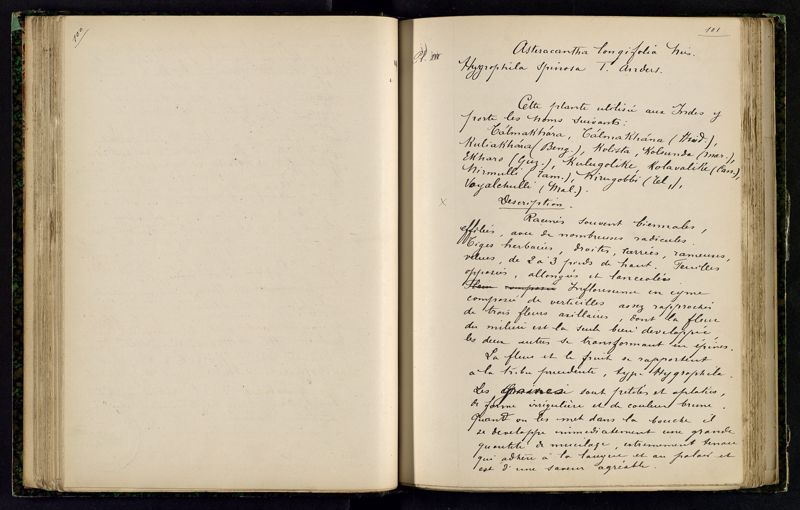 100
101
Pl. XVI
Asteracantha longifolia Nees.
Hygrophila spinosa T. Anders.
Cette plante utilisée aux Indes y
porte les noms suivants:
Tálmakhára, Tálmakhána (Hind.),
Kuliakhára (Beng.), Kolista, Kolsunda (mar.),
Ekharo (Guz.), Kulugolike Kolavalike (Can.),
Nirmulli (Tam.), Nirugobbi (Tel.),
Vayalchulli (Mal.).
Description.
Racines souvent biennales,
effilées, avec de nombreuses radicules.
Tiges herbacées, droites, carrées, rameuses,
velues, de 2 à 3 pieds de haut. Feuilles
opposées, allongées et lancéolées
Inflorescence en cyme
composée de verticilles assez rapprochés
de trois fleurs axillaires, dont la fleur
du milieu est la seule bien developpée
les deux autres se transformant en épines.
La fleur et le fruit se rapportent
à la tribu precedente, type Hygrophila.
Les graines sont petites et aplaties,
de forme irrégulière et de couleur brune.
Quand on les met dans la bouche il
se developpe immediatement une grande
quantité de mucilage, extremement tenace
qui adhère à la langue et au palais et
est d'une saveur agréable.